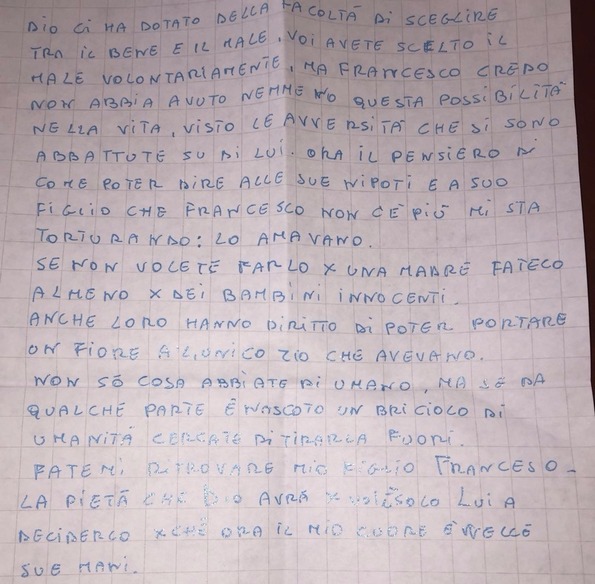 DIO CI HA DOTATO DELLA FACOLTÀ DI SCEGLIRE
TRA IL BENE E IL MALE. VOI AVETE SCELTO IL
MALE VOLONTARIAMENTE, MA FRANCESCO CREDO
NON ABBIA AVUTO NEMMENO QUESTA POSSIBILITÀ
NELLA VITA, VISTO LE AVVERSITÀ CHE SI SONO
ABBATTUTE SU DI LUI. ORA IL PENSIERO DI
COME POTER DIRE ALLE SUE NIPOTI E A SUO
FIGLIO CHE FRANCESCO NON C'È PIÙ MI STA
TORTURANDO: LO AMAVANO.
SE NON VOLETE FARLO X UNA MADRE FATECO
ALMENO X DEI BAMBINI INNOCENTI.
ANCHE LORO HANNO DIRITTO DI POTER PORTARE
UN FIORE A L'UNICO ZIO CHE AVEVANO.
NON SÒ COSA ABBIATE DI UMANO, MA SE DA
QUALCHE PARTE È NASCOTO UN BRICIOLO DI
UMANITÀ CERCATE DI TIRARLA FUORI.
FATEMI RITROVARE MIO FIGLIO FRANCESO-
LA PIETÀ CHE DIO AVRÀ X SOLO LUI A
DECIDERCO XCHÈ ORA IL MIO CUORE È NELLE
SUE MANI.